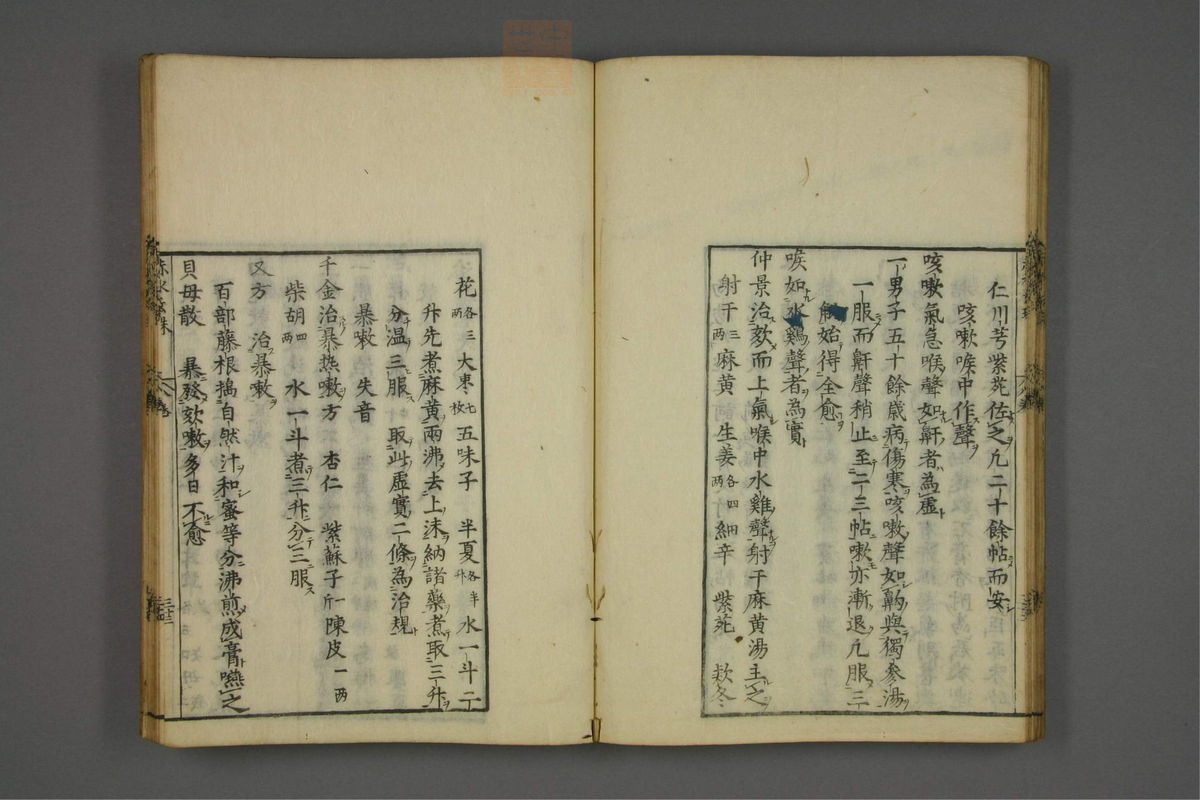 仁川芎紫菀佐之凡二十餘帖而安
咳嗽喉中作聲
咳嗽氣急喉聲如鼾者為虛
一男子五十餘歲病傷寒咳嗽聲如齁與獨參湯
一服而鼾聲稍止至二三帖嗽亦漸退凡服三
始得全愈
喉如水鷄聲者為實
仲景治欬而上氣喉中水雞聲射干麻黄湯主之
射干三两麻黄生姜各四两細辛紫菀欵冬
花各三两大枣七枚五味子半夏各半升水一斗二
升先煮麻黄兩沸去上沫納諸藥煮取三升
分温三服取此虛實二條為治規
暴嗽失音
千金治暴熱嗽方杏仁紫蘇子一斤陳皮一两
柴胡四两水一斗煮三升分三服
又方治暴嗽
百部藤根搗自然汁和蜜等分沸煎成膏嚥之
貝母散暴發欬嗽多日不愈